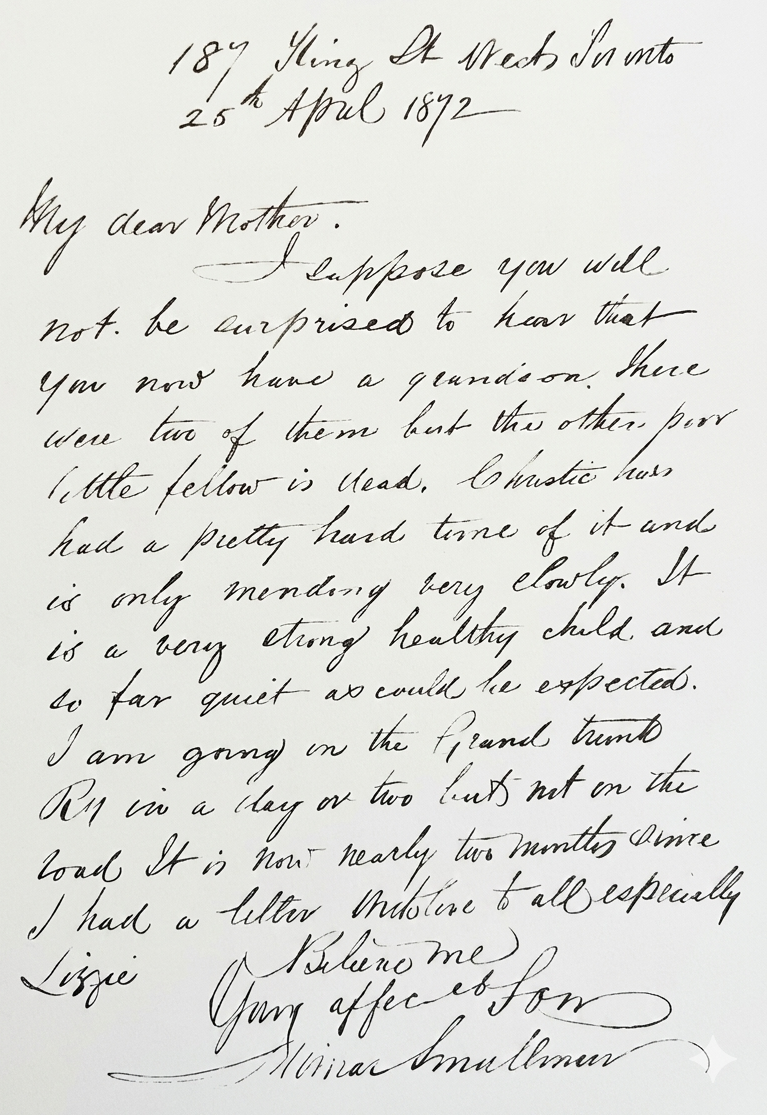 187 King St West Toronto
25th April 1872
My dear Mother.
I suppose you will
not. be surprised to hear that
you now have a grandson. There
were two of them but the other poor
little fellow is dead. Christie has
had a pretty hard time of it and
is only mending very slowly. It
is a very strong healthy child and
so far quiet as could be expected.
I am going on the Grand trunk
Ry in a day or two but not on the
road It is now nearly two months since
I had a letter With love to all especially
Lizzie
Believe me
Your affect Son
Smallman